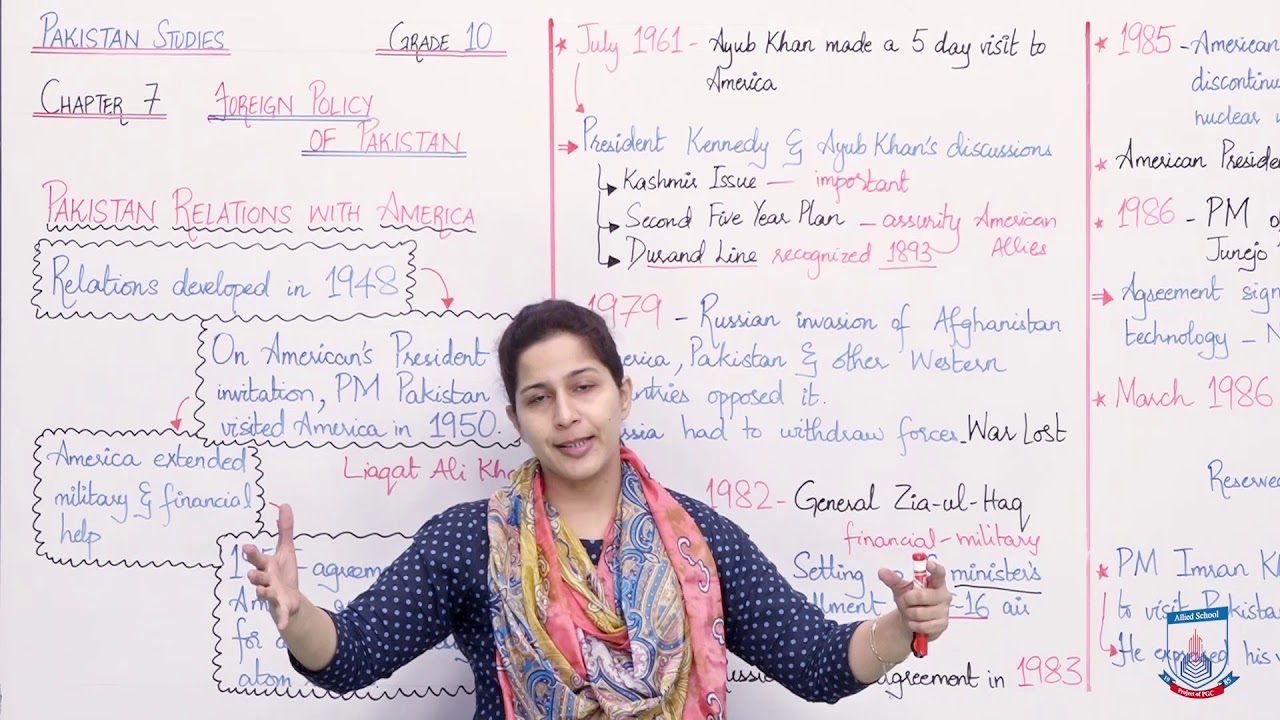 PAKISTAN STUDIES
GRADE 10
CHAPTER 7
FOREIGN POLICY
OF PAKISTAN
PAKISTAN RELATIONS WITH AMERICA
Relations developed in 1948
On American's President
invitation, PM Pakistan
visited America in 1950.
Liaqat Ali
America extended
military & financial
help
for
atom
July 1961 - Ayub Khan made a 5 day visit to
America
President Kennedy & Ayub Khan's discussions
Kashmir Issue — important
Second Five Year Plan — assurity American
Allies
Durand Line recognized 1893
1979 - Russian invasion of Afghanistan
Pakistan & other Western
opposed it.
had to withdraw forces - War Lost
1982 - General Zia-ul-Haq
financial - military
Setting minister's
-16 air
agreement in 1983
1985 - American
nuclear
American
1986 - PM
Junejo
Agreement
technology -
March 1986
Reserved
PM Imran
to visit Pakistan
He expressed his
Allied School
19 85
Project of PGC